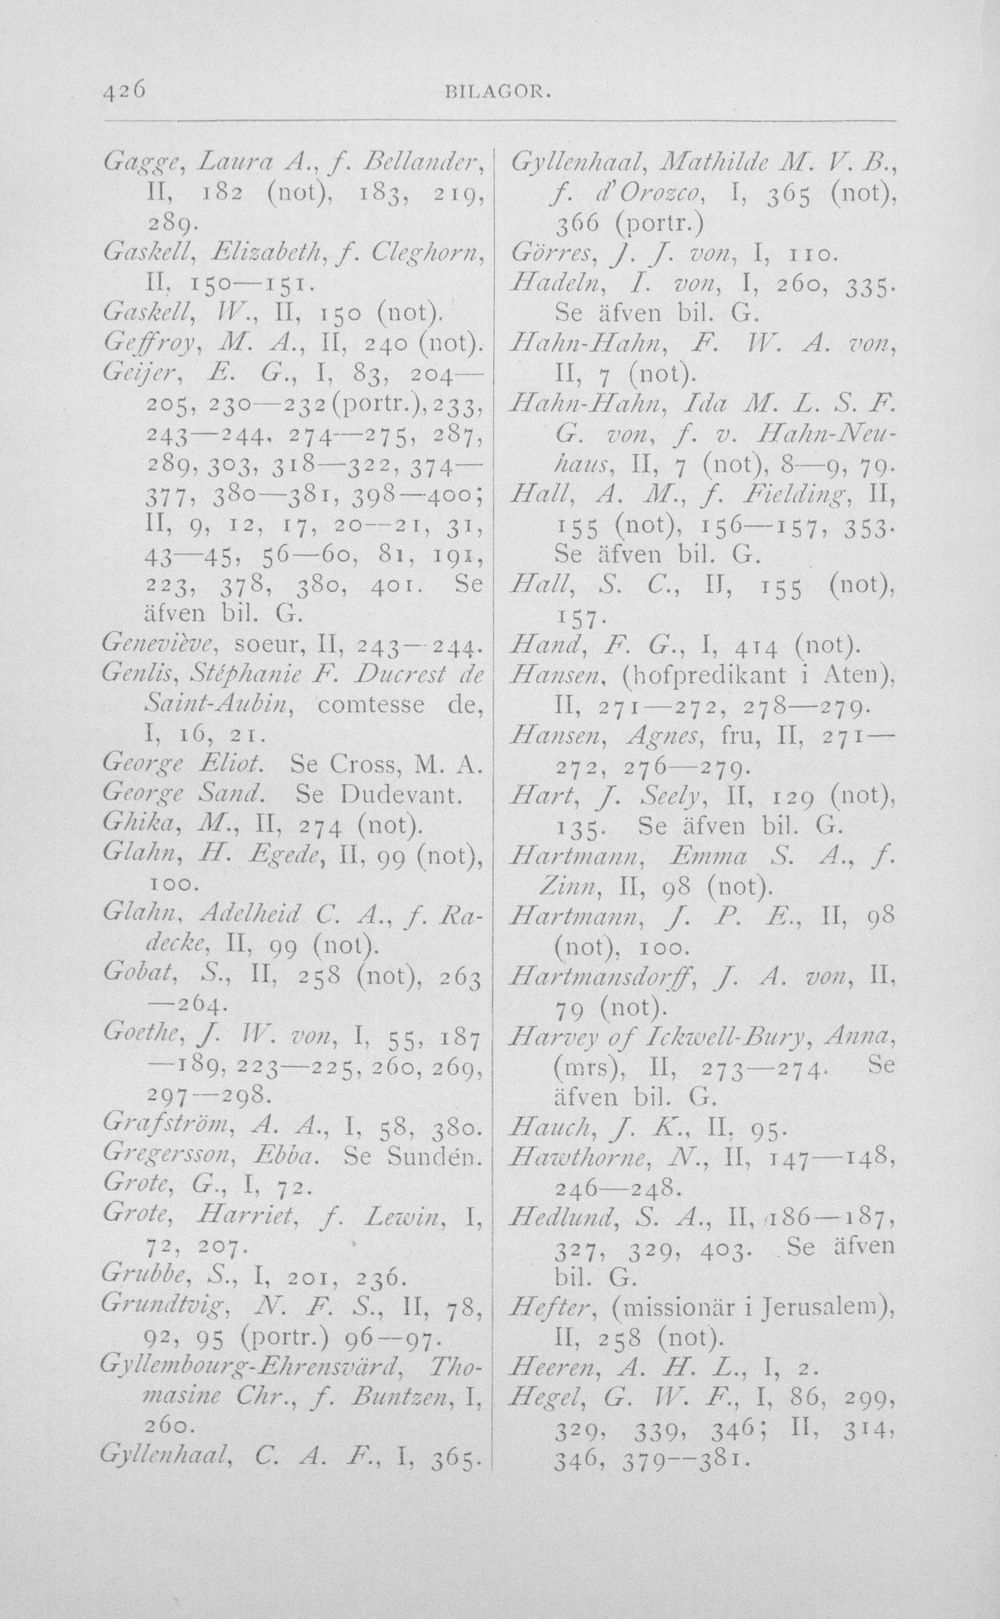 426
BILAGOR.
Gagge, Laura A., f. Bellander,
II, 182 (not), 183, 219,
289.
Gaskell, Elizabeth, f. Cleghorn,
II, 150—151.
Gaskell, W., II, 150 (not).
Geffroy, M. A., II, 240 (not).
Geijer, E. G., I, 83, 204—
205, 230—232 (portr.), 233,
243—244, 274—275, 287,
289, 303, 318—322, 374—
377, 380—381, 398—400;
II, 9, 12, 17, 20—21, 31,
43—45, 56—60, 81, 191,
223, 378, 380, 401. Se
äfven bil. G.
Geneviève, soeur, II, 243—244.
Genlis, Stéphanie F. Ducrest de
Saint-Aubin, comtesse de,
I, 16, 21.
George Eliot. Se Cross, M. A.
George Sand. Se Dudevant.
Ghika, M., II, 274 (not).
Glahn, H. Egede, II, 99 (not),
100.
Glahn, Adelheid C. A., f. Ra-
decke, II, 99 (not).
Gobat, S., II, 258 (not), 263
—264.
Goethe, J. W. von, I, 55, 187
—189, 223—225, 260, 269,
297—298.
Grafström, A. A., I, 58, 380.
Gregersson, Ebba. Se Sundén.
Grote, G., I, 72.
Grote, Harriet, f. Lewin, I,
72, 207.
Grubbe, S., I, 201, 236.
Grundtvig, N. F. S., II, 78,
92, 95 (portr.) 96—97.
Gyllembourg-Ehrensvärd, Tho-
masine Chr., f. Buntzen, I,
260.
Gyllenhaal, C. A. F., I, 365.
Gyllenhaal, Mathilde M. V. B.,
f. d'Orozco, I, 365 (not),
366 (portr.)
Görres, J. J. von, I, 110.
Hadeln, I. von, I, 260, 335.
Se äfven bil. G.
Hahn-Hahn, F. W. A. von,
II, 7 (not).
Hahn-Hahn, Ida M. L. S. F.
G. von, f. v. Hahn-Neu-
haus, II, 7 (not), 8—9, 79.
Hall, A. M., f. Fielding, II,
155 (not), 156—157, 353.
Se äfven bil. G.
Hall, S. C., II, 155 (not),
157.
Hand, F. G., I, 414 (not).
Hansen, (hofpredikant i Aten),
II, 271—272, 278—279.
Hansen, Agnes, fru, II, 271—
272, 276—279.
Hart, J. Seely, II, 129 (not),
135. Se äfven bil. G.
Hartmann, Emma S. A., f.
Zinn, II, 98 (not).
Hartmann, J. P. E., II, 98
(not), 100.
Hartmansdorff, J. A. von, II,
79 (not).
Harvey of Ickwell-Bury, Anna,
(mrs), II, 273—274. Se
äfven bil. G.
Hauch, J. K., II, 95.
Hawthorne, N., II, 147—148,
246—248.
Hedlund, S. A., II, 186—187,
327, 329, 403. Se äfven
bil. G.
Hefter, (missionär i Jerusalem),
II, 258 (not).
Heeren, A. H. L., I, 2.
Hegel, G. W. F., I, 86, 299,
329, 339, 346; II, 314,
346, 379—381.